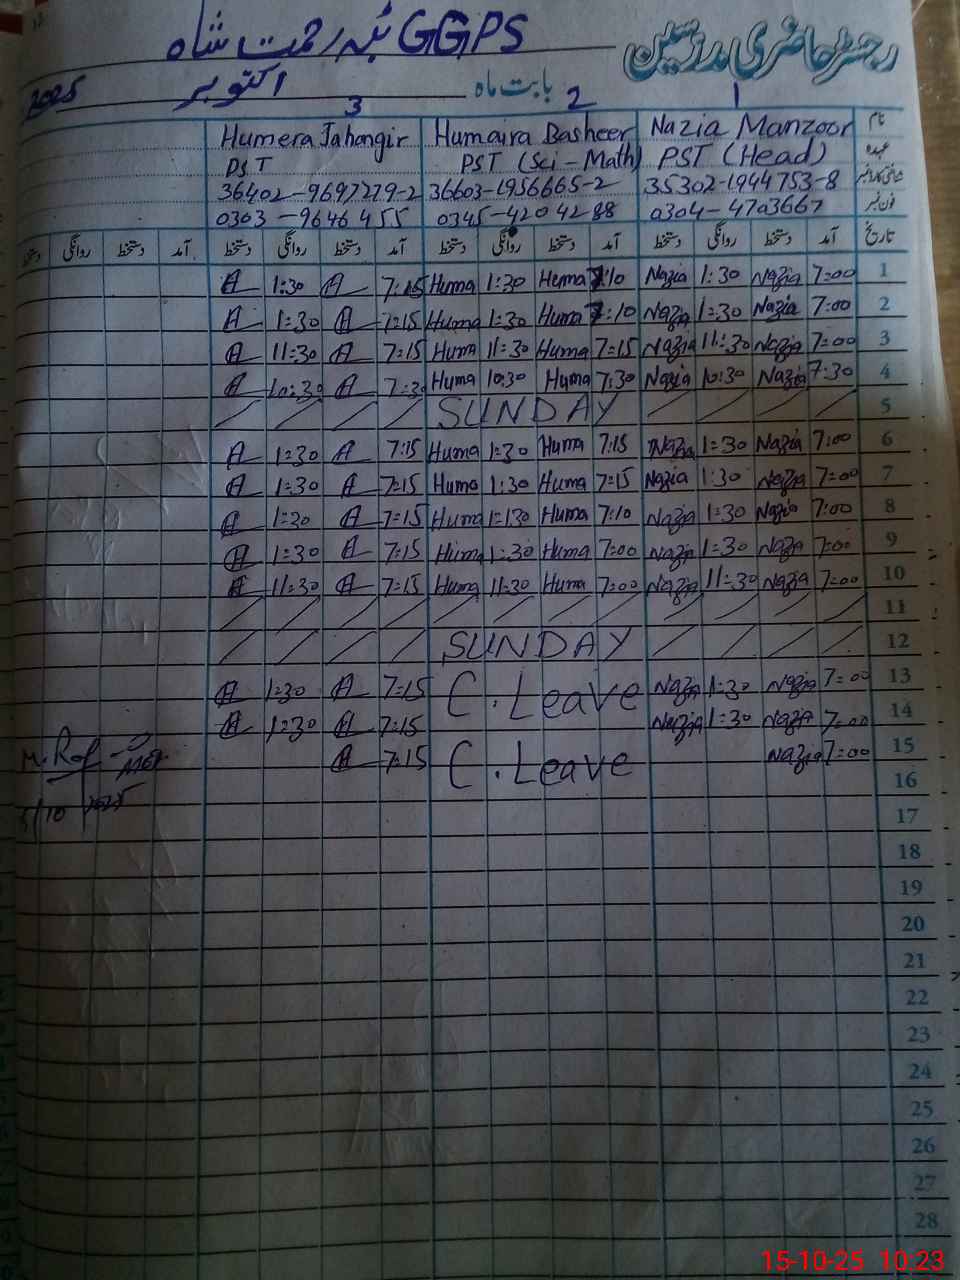 رجسٹر حاضری مدرسین
GGPS ٹبہ رحمت شاہ
بابت ماہ اکتوبر 2025
1 2 3
نام Nazia Manzoor Humaira Basheer Humera Jahangir
عہدہ PST (Head) PST (Sci-Math) PST
35302-1944753-8 36603-1956665-2 36402-9697279-2
فون نمبر 0304-4703667 0345-4204288 0303-9646455
تاریخ آمد دستخط روانگی دستخط آمد دستخط روانگی دستخط آمد دستخط روانگی دستخط آمد دستخط روانگی دستخط
1 7:00 Nazia 1:30 Nazia 7:10 Huma 1:30 Huma 7:15 A 1:30 A
2 7:00 Nazia 1:30 Nazia 7:10 Huma 1:30 Huma 7:15 A 1:30 A
3 7:00 Nazia 11:30 Nazia 7:15 Huma 11:30 Huma 7:15 A 11:30 A
4 7:30 Nazia 10:30 Nazia 7:30 Huma 10:30 Huma 7:30 A 10:30 A
5 SUNDAY
6 7:00 Nazia 1:30 Nazia 7:15 Huma 1:30 Huma 7:15 A 1:30 A
7 7:00 Nazia 1:30 Nazia 7:15 Huma 1:30 Huma 7:15 A 1:30 A
8 7:00 Nazia 1:30 Nazia 7:10 Huma 1:30 Huma 7:15 A 1:30 A
9 7:00 Nazia 1:30 Nazia 7:00 Huma 1:30 Huma 7:15 A 1:30 A
10 7:00 Nazia 11:30 Nazia 7:00 Huma 11:30 Huma 7:15 A 11:30 A
11
12 SUNDAY
13 7:00 Nazia 1:30 Nazia C. Leave 7:15 A 1:30 A
14 7:00 Nazia 1:30 Nazia 7:15 A 1:30 A
15 7:00 Nazia C. Leave 7:15 A
16
17
18
19
20
21
22
23
24
25
26
27
28
15-10-25 10:23